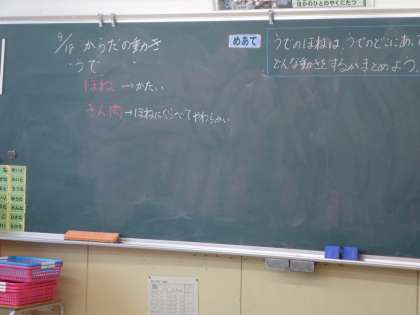 ほかのひとのやくにたつ
9/18 からだの動き
・うで
ほね →かたい
きん肉→ほねにくらべてやわらかい
めあて
うでのほねは、うでのどこにあって
どんな動きをするかまとめよう。